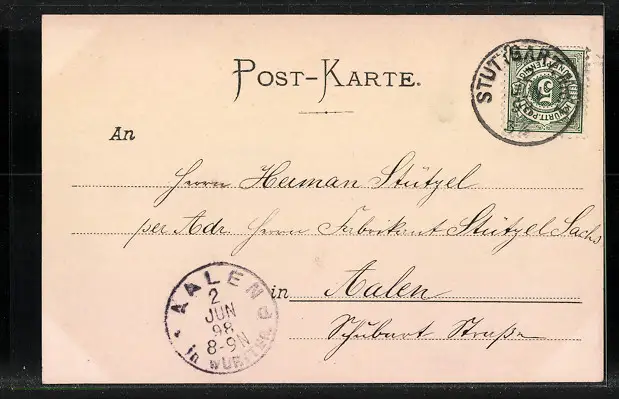 POST-KARTE.
STUTTGART
5
An
Herrn Herman Stützel
per Adr. Herrn Fabrikant Stützel Sachs
in Aalen
Schubart Straße
AALEN
2
JUN
98
8-9N
in WÜRTTEMB